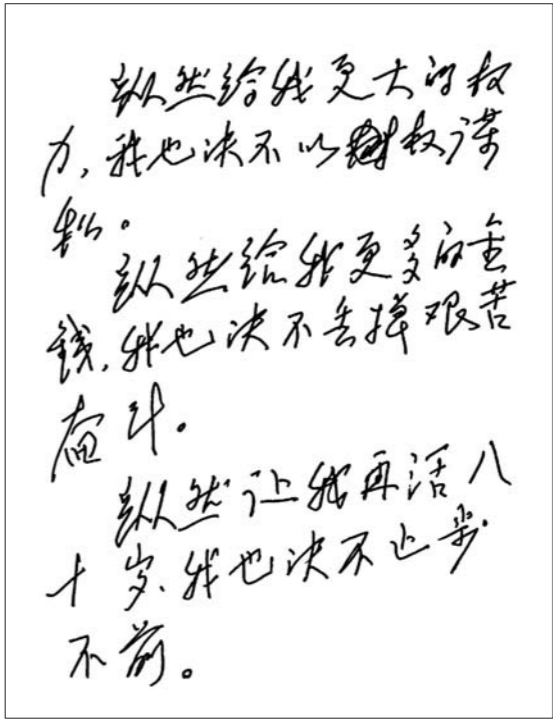 纵然给我更大的权
力，我也决不以权谋
私。
纵然给我更多的金
钱，我也决不丢掉艰苦
奋斗。
纵然让我再活八
十岁、我也决不止步
不前。